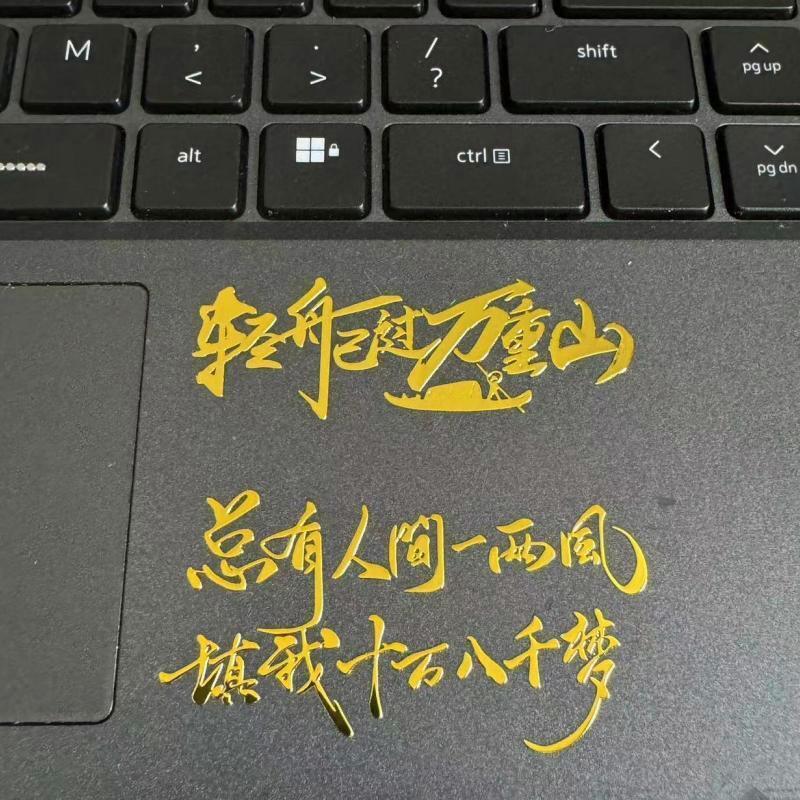 M , . / shift pg up
< > ?
alt ctrl < pg dn
轻舟已过万重山
总有人間一两風
填我十万八千梦